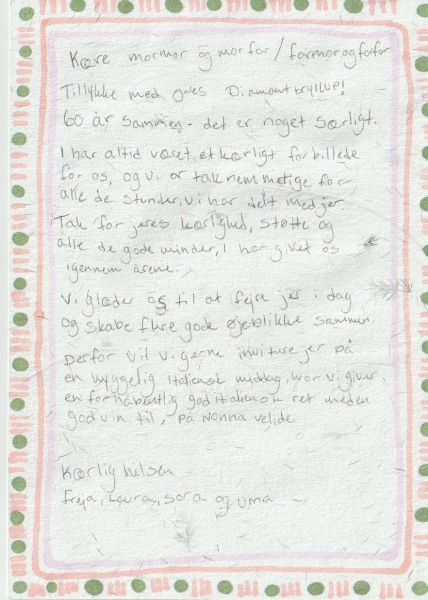 Kære mormor og morfar / farmor og farfar
Tillykke med jeres Diamantbryllup!
60 år sammen - det er noget særligt.
I har altid været et kærligt forbillede
for os, og vi er taknemmelige for
alle de stunder, vi har delt med jer.
Tak for jeres kærlighed, støtte og
alle de gode minder, I har givet os
igennem årene.
Vi glæder os til at fejre jer i dag
og skabe flere gode øjeblikke sammen.
Derfor vil vi gerne invitere jer på
en hyggelig italiensk middag, hvor vi giver
en forhåbentlig god italiensk ret med en
god vin til, på Nonna
Kærlig hilsen
Freja, Laura, Sara og Uma